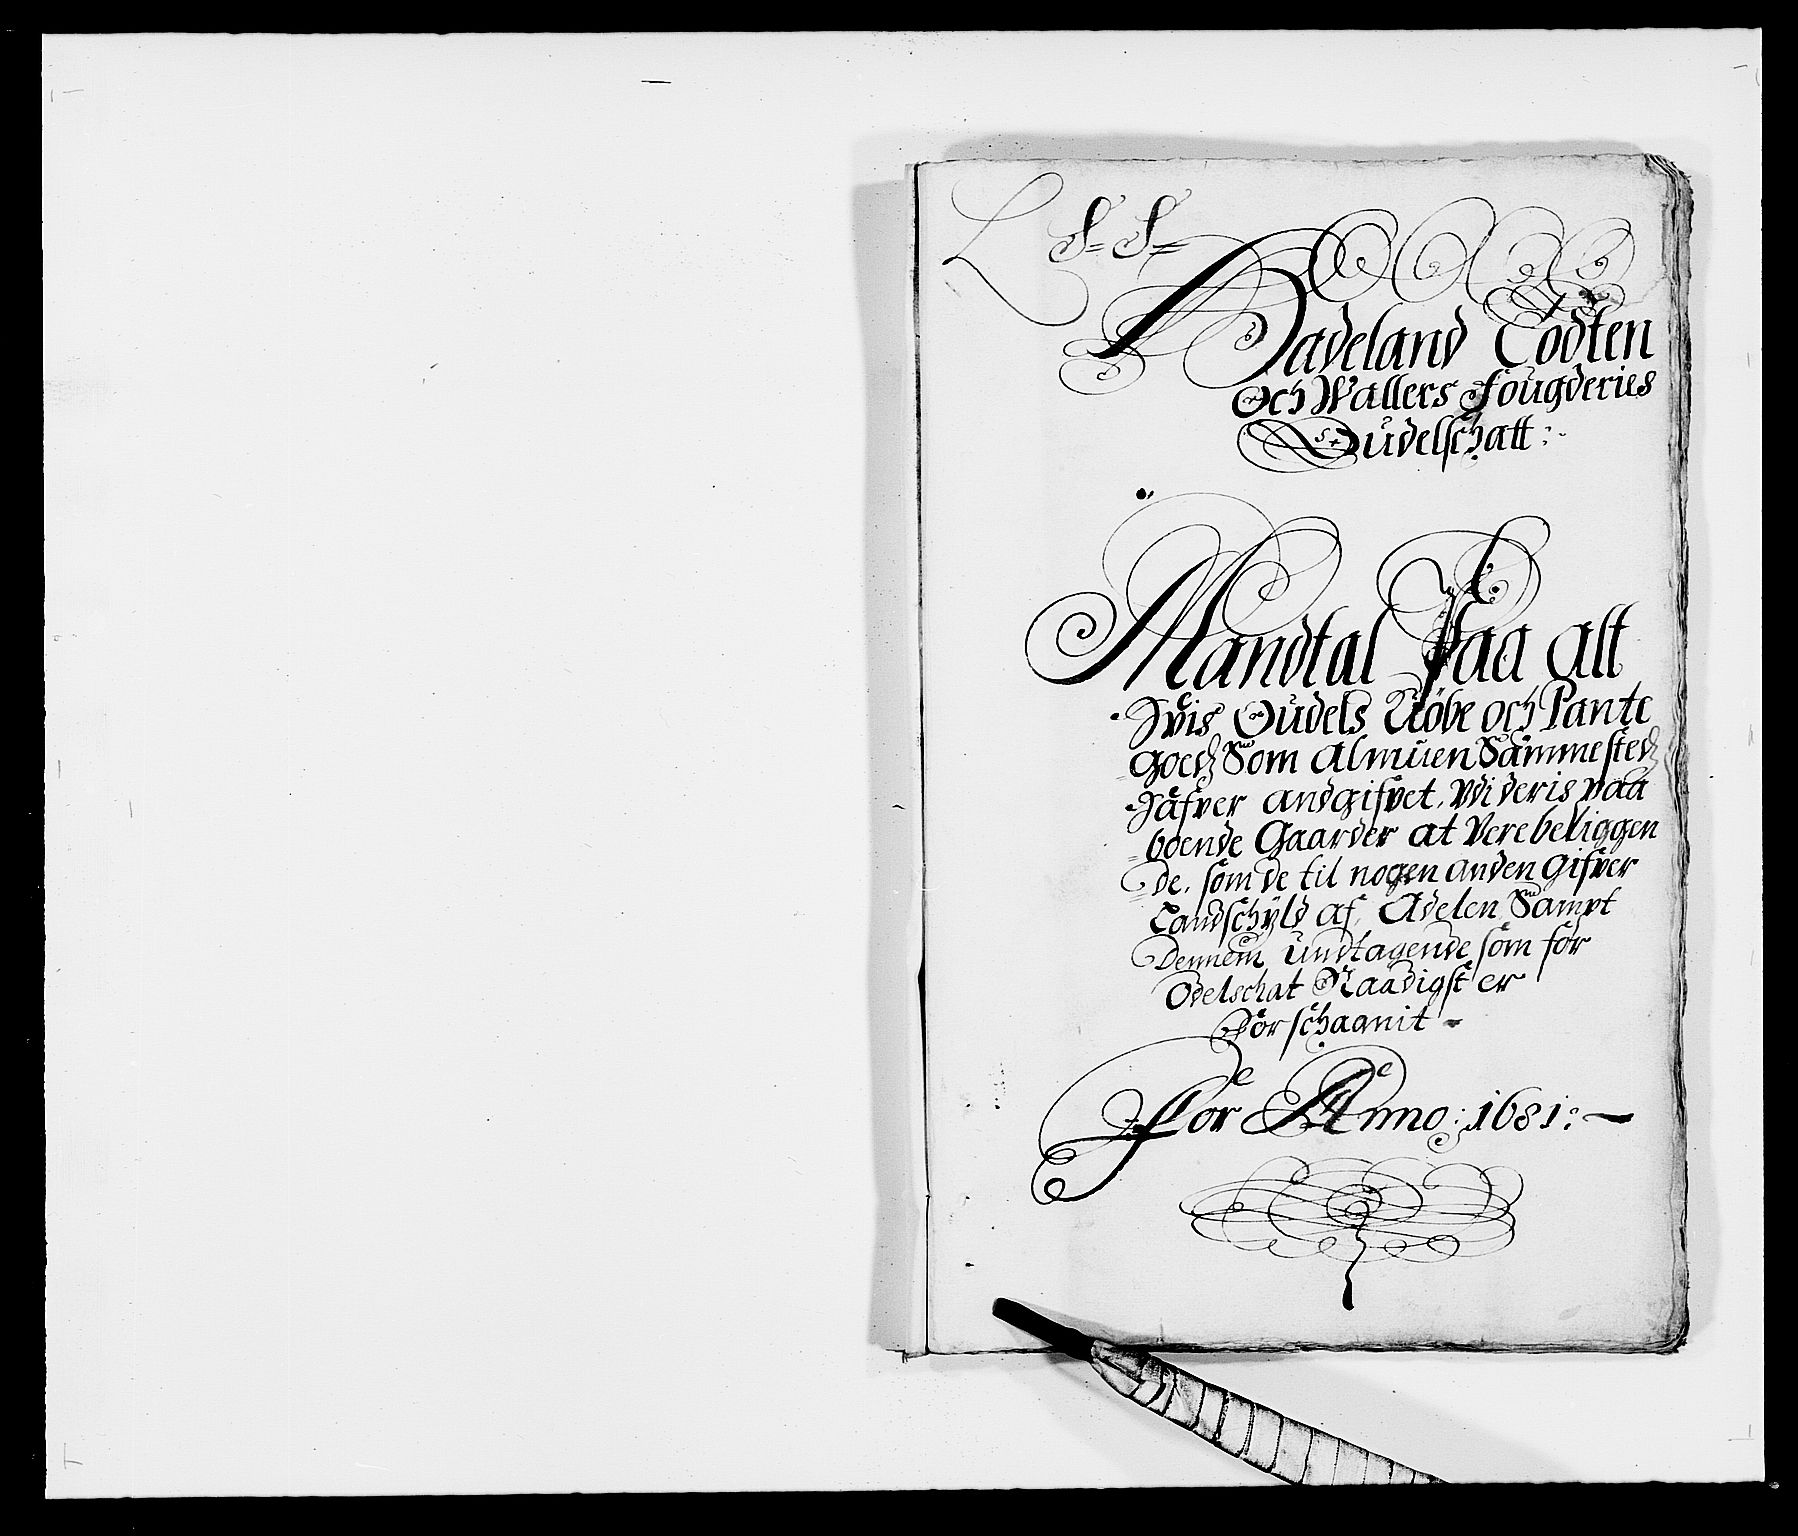 L S= S=
Hadeland Todten
Och Wallers fougderies
Oudelschatt:-
Mandtal Paa alt
Hvis Oudels Kiöbe och Pante
goedz Som Almuen Sammestedz
Hafver andgifvet, Wdi deris paa
boende Gaarder at Vere beliggen
de, som de til nogen anden Gifver
Landschyld af, Adelen Sampt
Dennem undtagende som for
Odelschat Naadigst er
Forschaanit -
For Anno: 1681:-